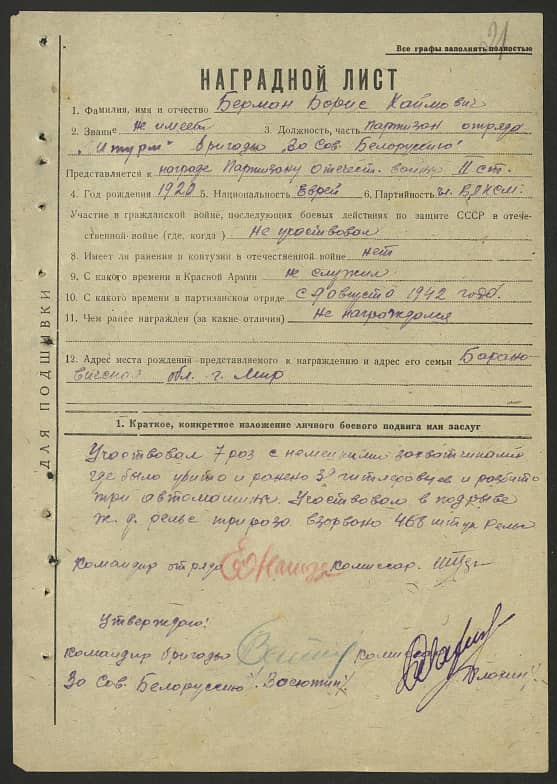 21
Все графы заполнять полностью
НАГРАДНОЙ ЛИСТ
1. Фамилия, имя и отчество Берман Борис Хаймович
2. Звание не имеет 3. Должность, часть партизан отряда
"Штурм" бригады "За Сов. Белоруссию"
Представляется к награде Партизану отечест. войны II ст.
4. Год рождения 1920 5. Национальность Еврей 6. Партийность чл. ВЛКСМ.
Участие в гражданской войне, последующих боевых действиях по защите СССР в отече-
ственной войне (где, когда) Не участвовал
8. Имеет ли ранения и контузии в отечественной войне нет
9. С какого времени в Красной Армии не служил
10. С какого времени в партизанском отряде с 9 августа 1942 года.
11. Чем ранее награжден (за какие отличия) Не награждался
12. Адрес места рождения представляемого к награждению и адрес его семьи Барано-
вичская обл. г. Мир
ДЛЯ ПОДШИВКИ
1. Краткое, конкретное изложение личного боевого подвига или заслуг
Участвовал 7 раз с немецкими захватчиками
где было убито и ранено гитлеровцев и разбито
три автомашины. Участвовал в подрыве
ж. д. рельс три раза взорвано 468 штук рельс
Командир отряда Комиссар.
Утверждаю!
Командир бригады Комиссар
"За Сов. Белоруссию"